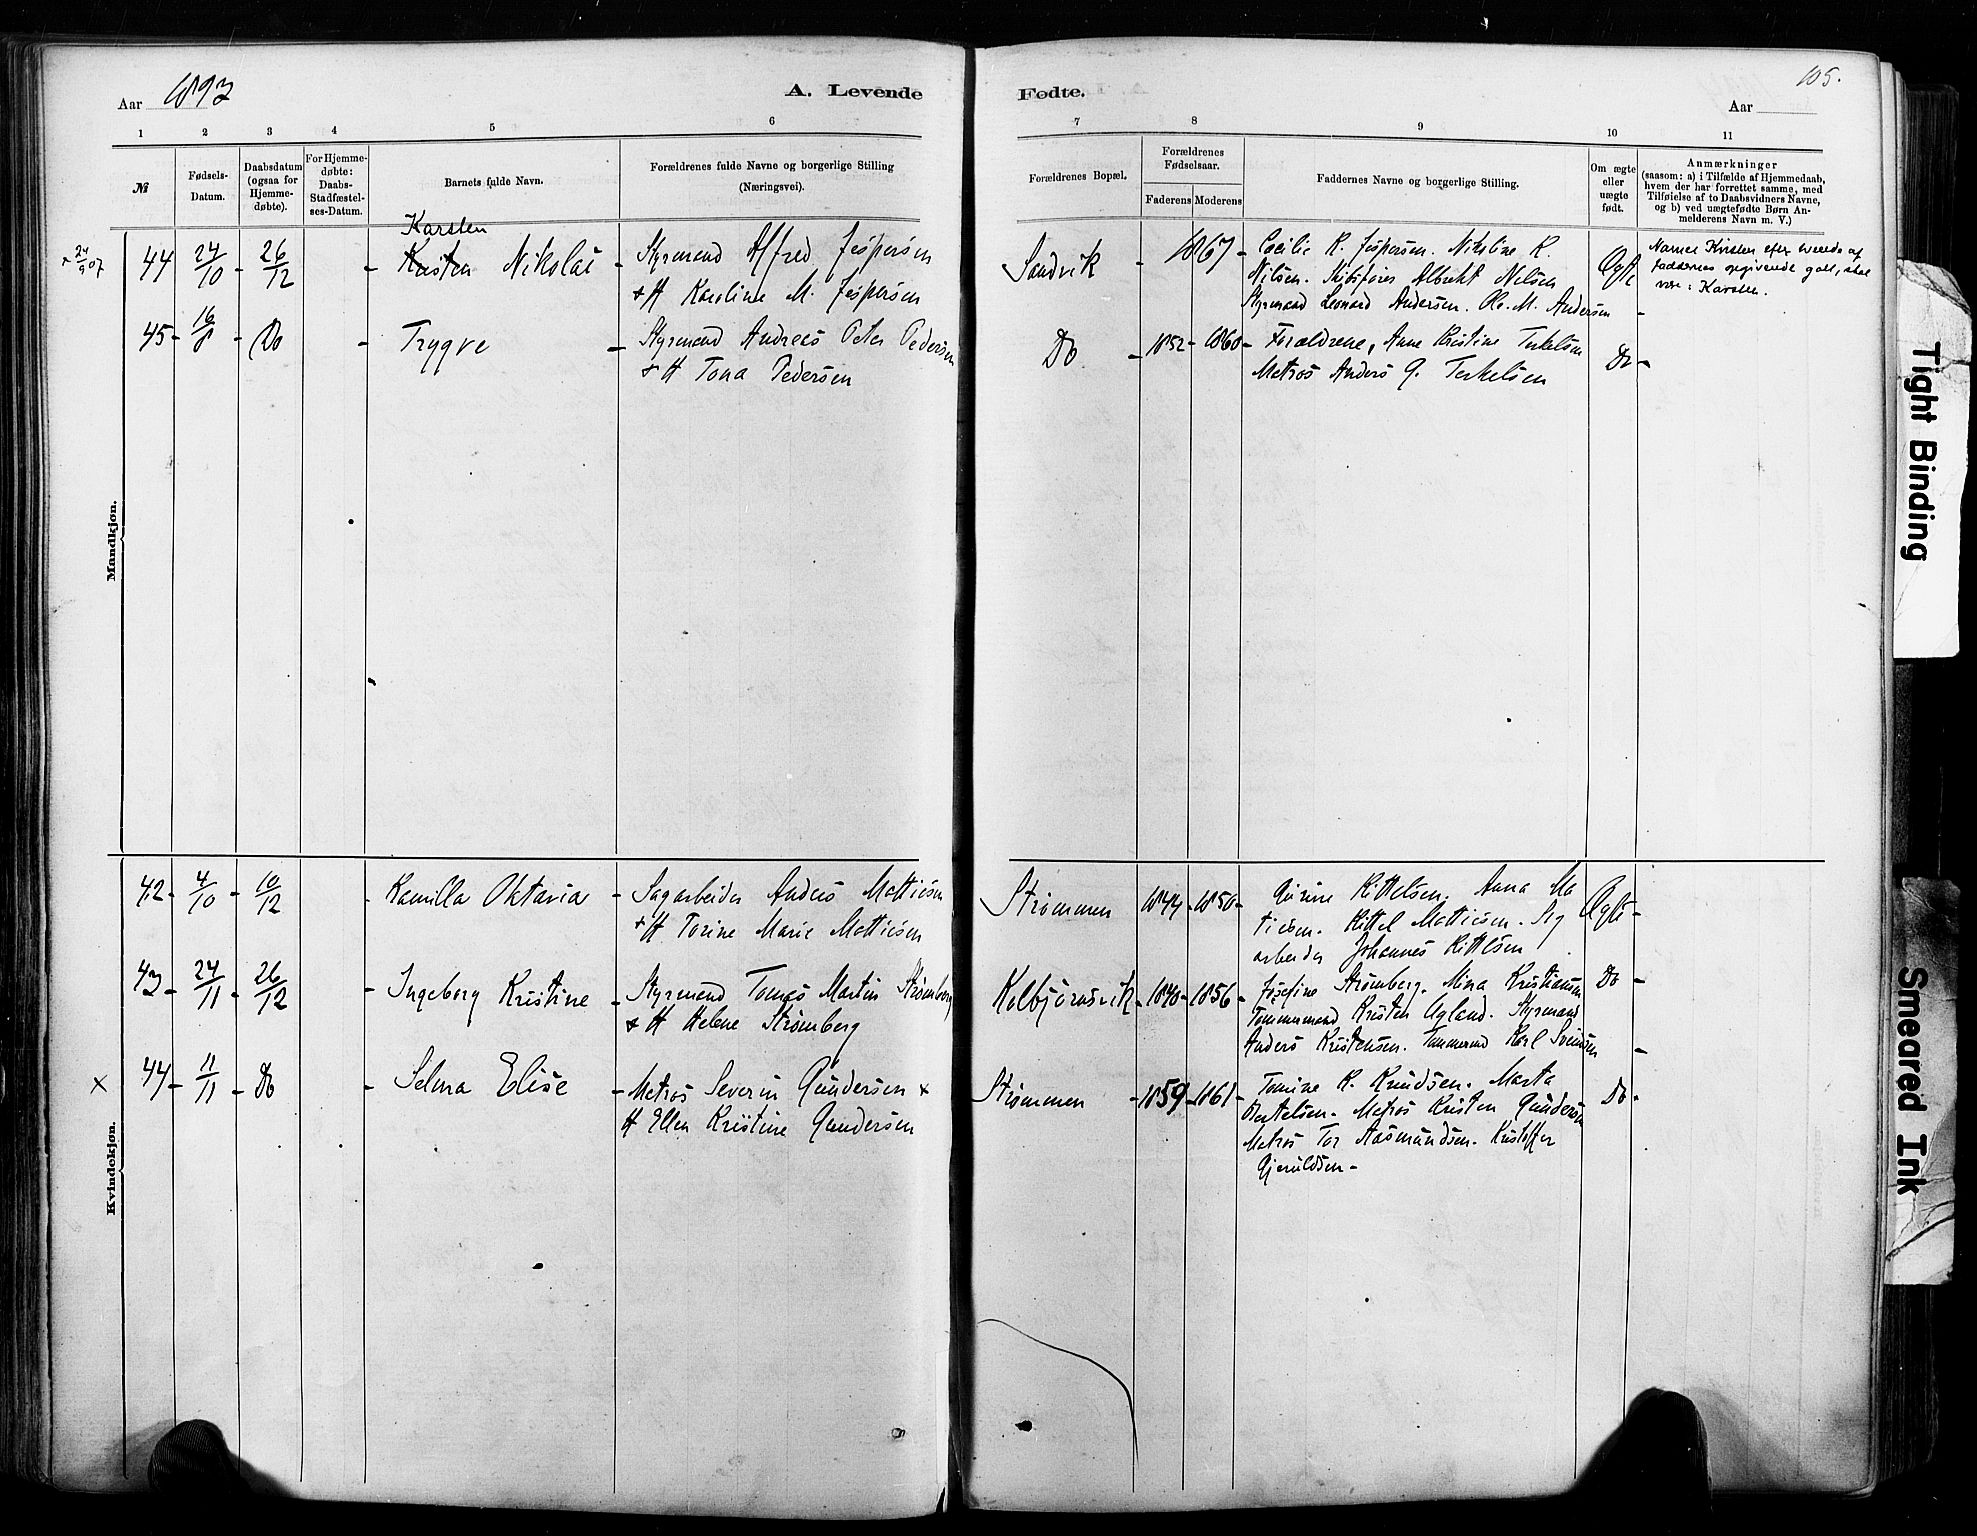 Aar 1893
A. Levende Fødte.
105.
Aar
1 2 3 4 5 6 7 8 9 10 11
№
Fødsels-
Datum.
Daabsdatum
(ogsaa for
Hjemme-
døbte).
For Hjemme-
døbte:
Daabs-
Stadfæstel-
ses-Datum.
Barnets fulde Navn.
Forældrenes fulde Navne og borgerlige Stilling
(Næringsvei).
Forældrenes Bopæl.
Forældrenes
Fødselsaar.
Faderens Moderens
Faddernes Navne og borgerlige Stilling.
Om ægte
eller
uægte
født.
Anmærkninger
(saasom: a) i Tilfælde af Hjemmedaab,
hvem der har forrettet samme, med
Tilføielse af to Daabsvidners Navne,
og b) ved uægtefødte Børn An-
melderens Navn m. V.)
Mandkjøn.
× 24/9 07
44 24/10 - 26/12 -
Karsten
Kristen Nikolai -
Styrmand Alfred Jespersen
+ H Karoline M. Jespersen
Sandvik - 1867 -
Cecilie K. Jespersen. Nikoline K.
Nilsen. Skibsfører Albrekt Nilsen
Styrmand Leonard Andersen. Ol. M. Andersen
Ægte -
Navnet Kristen efter
faddernes opgivende galt, skal
være: Karsten.
45 - 16/8 - Do - Trygve -
Styrmand Andreas Peter Pedersen
+ H Tona Pedersen
Do - 1852 - 1860 -
Forældrene, Anne Kristine Terkelsen
Matros Anders G. Terkelsen
Do -
Kvindekjøn.
42 - 4/10 - 10/12 - Kamilla Oktavia -
Sagarbeider Anders Mattiesen
+ H Torine Marie Mattiesen
Strømmen 1844 - 1850 -
Gurine Kittelsen. Anna Ma
tiesen. Kittel Mattiesen. Sag
arbeider Johannes Kittelsen
Ægte -
43 - 24/11 - 26/12 - Ingeborg Kristine -
Styrmand Tomas Martin Strømberg
+ H Helene Strømberg
Kolbjørnsvik - 1840 - 1856 -
Josefine Strømberg. Mina Kristiansen
Tømmermand Kristen Agland. Styrmand
Anders Kristensen. Tømmermd Karl Svendsen
Do -
×
44 - 11/11 - Do - Selma Elise -
Matros Severin Gundersen +
H Ellen Kristine Gundersen
Strømmen - 1859 - 1861 -
Tomine K. Knudsen. Marta
Bertelsen. Matros Kristen Gundersen
Matros Tor Aasmundsen. Kristoffer
Gjeruldsen -
Do -
Tight Binding
Smeared Ink